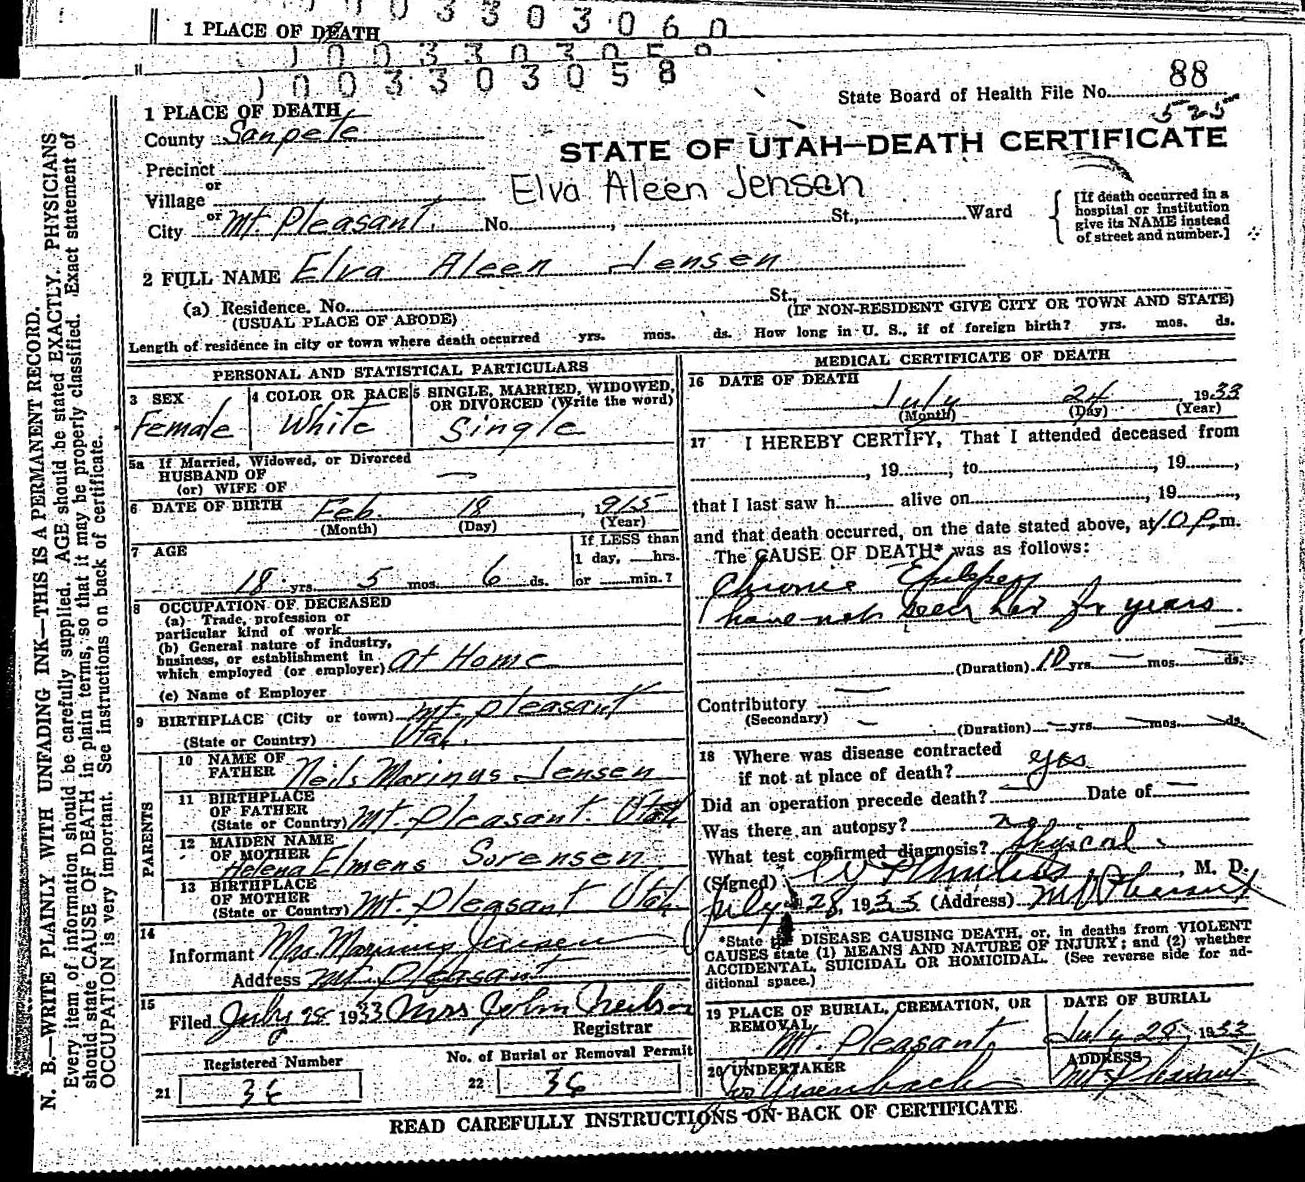 0 0 3 3 0 3 0 6 0
1 PLACE OF DEATH
1 0 0 3 3 0 3 0 5 9
1 0 0 3 3 0 3 0 5 8
88
State Board of Health File No.
525
1 PLACE OF DEATH
County Sanpete
STATE OF UTAH—DEATH CERTIFICATE
Precinct
or
Elva Aleen Jensen
Village
or
City Mt. Pleasant. No. , St., Ward
[If death occurred in a hospital or institution give its NAME instead of street and number.]
2 FULL NAME Elva Aleen Jensen
(a) Residence. No. St.,
(USUAL PLACE OF ABODE) (IF NON-RESIDENT GIVE CITY OR TOWN AND STATE)
Length of residence in city or town where death occurred yrs. mos. ds. How long in U. S., if of foreign birth? yrs. mos. ds.
PERSONAL AND STATISTICAL PARTICULARS
3 SEX
Female
4 COLOR OR RACE
White
5 SINGLE, MARRIED, WIDOWED, OR DIVORCED (Write the word)
Single
5a If Married, Widowed, or Divorced
HUSBAND OF
(or) WIFE OF —
6 DATE OF BIRTH Feb. 18, 1915
(Month) (Day) (Year)
7 AGE
18 yrs. 5 mos. 6 ds.
If LESS than
1 day, hrs.
or min.?
8 OCCUPATION OF DECEASED
(a) Trade, profession or
particular kind of work
(b) General nature of industry,
business, or establishment in
which employed (or employer) At Home
(c) Name of Employer
9 BIRTHPLACE (City or town) Mt. Pleasant
(State or Country) Utah.
PARENTS
10 NAME OF
FATHER Neils Marinus Jensen
11 BIRTHPLACE
OF FATHER
(State or Country) Mt. Pleasant. Utah
12 MAIDEN NAME
OF MOTHER Helena Elmens Sorensen
13 BIRTHPLACE
OF MOTHER
(State or Country) Mt. Pleasant Utah
14
Informant Mrs. Marinus Jensen
Address Mt. Pleasant
15
Filed July 28 1933 Mrs John Neilson
Registrar
Registered Number
21 36
No. of Burial or Removal Permit
22 36
MEDICAL CERTIFICATE OF DEATH
16 DATE OF DEATH
July 24, 1933
(Month) (Day) (Year)
17 I HEREBY CERTIFY, That I attended deceased from
, 19 , to , 19 ,
that I last saw h alive on , 19 ,
and that death occurred, on the date stated above, at 10 P. m.
The CAUSE OF DEATH* was as follows:
Chronic Epilepsy
have not seen her for years
(Duration) 10 yrs. — mos. — ds.
Contributory —
(Secondary) —
(Duration) — yrs. — mos. — ds.
18 Where was disease contracted
if not at place of death? yes
Did an operation precede death? — Date of —
Was there an autopsy? no
What test confirmed diagnosis? Physical
(Signed) , M. D.
July 28, 1933 (Address) Mt Pleasant
*State the DISEASE CAUSING DEATH, or, in deaths from VIOLENT
CAUSES state (1) MEANS AND NATURE OF INJURY; and (2) whether
ACCIDENTAL, SUICIDAL OR HOMICIDAL. (See reverse side for ad-
ditional space.)
19 PLACE OF BURIAL, CREMATION, OR
REMOVAL
Mt. Pleasant
DATE OF BURIAL
July 28, 1933
20 UNDERTAKER
ADDRESS
Mt Pleasant
READ CAREFULLY INSTRUCTIONS ON BACK OF CERTIFICATE
N. B.—WRITE PLAINLY WITH UNFADING INK—THIS IS A PERMANENT RECORD.
Every item of information should be carefully supplied. AGE should be stated EXACTLY. PHYSICIANS
should state CAUSE OF DEATH in plain terms, so that it may be properly classified. Exact statement of
OCCUPATION is very important. See instructions on back of certificate.